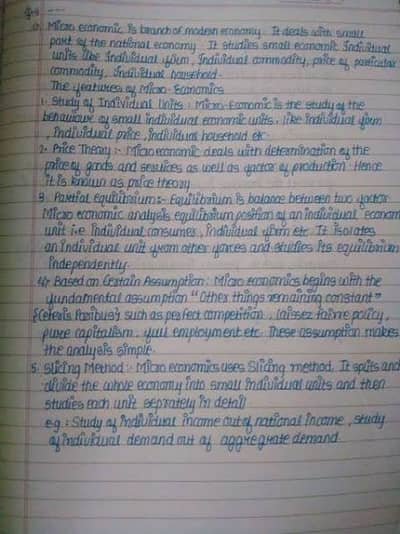 Micro economic is branch of modern economy. It deals with small
part of the national economy. It studies small economic Individual
units like Individual firm, Individual commodity, price of particular
commodity, Individual household.
The features of Micro-Economics
1. Study of Individual Units : Micro-Economic is the study of the
behaviour of small individual economic units, like individual firm
, Individual price, individual household etc.
2. Price Theory :- Micro economic deals with determination of the
price of goods and services as well as factor of production. Hence
it is known as price theory
3. Partial equilibrium:- Equilibrium is balance between two factor
Micro economic analysis equilibrium position of an individual econom
unit i.e individual consumer, individual firm etc. It isolates
an individual unit from other forces and studies its equilibrium
independently.
4. Based on Certain Assumption : Micro economics begins with the
fundamental assumption "Other things remaining constant"
{Ceteris Paribus} such as perfect competition, laissez faire policy,
pure capitalism, full employment etc. These assumption makes
the analysis simple.
5. Slicing Method :- Micro economics uses Slicing method. It splits and
divide the whole economy into small individual units and then
studies each unit seprately in detail
e.g. : Study of individual income out of national income, study
of individual demand out of aggregrate demand.